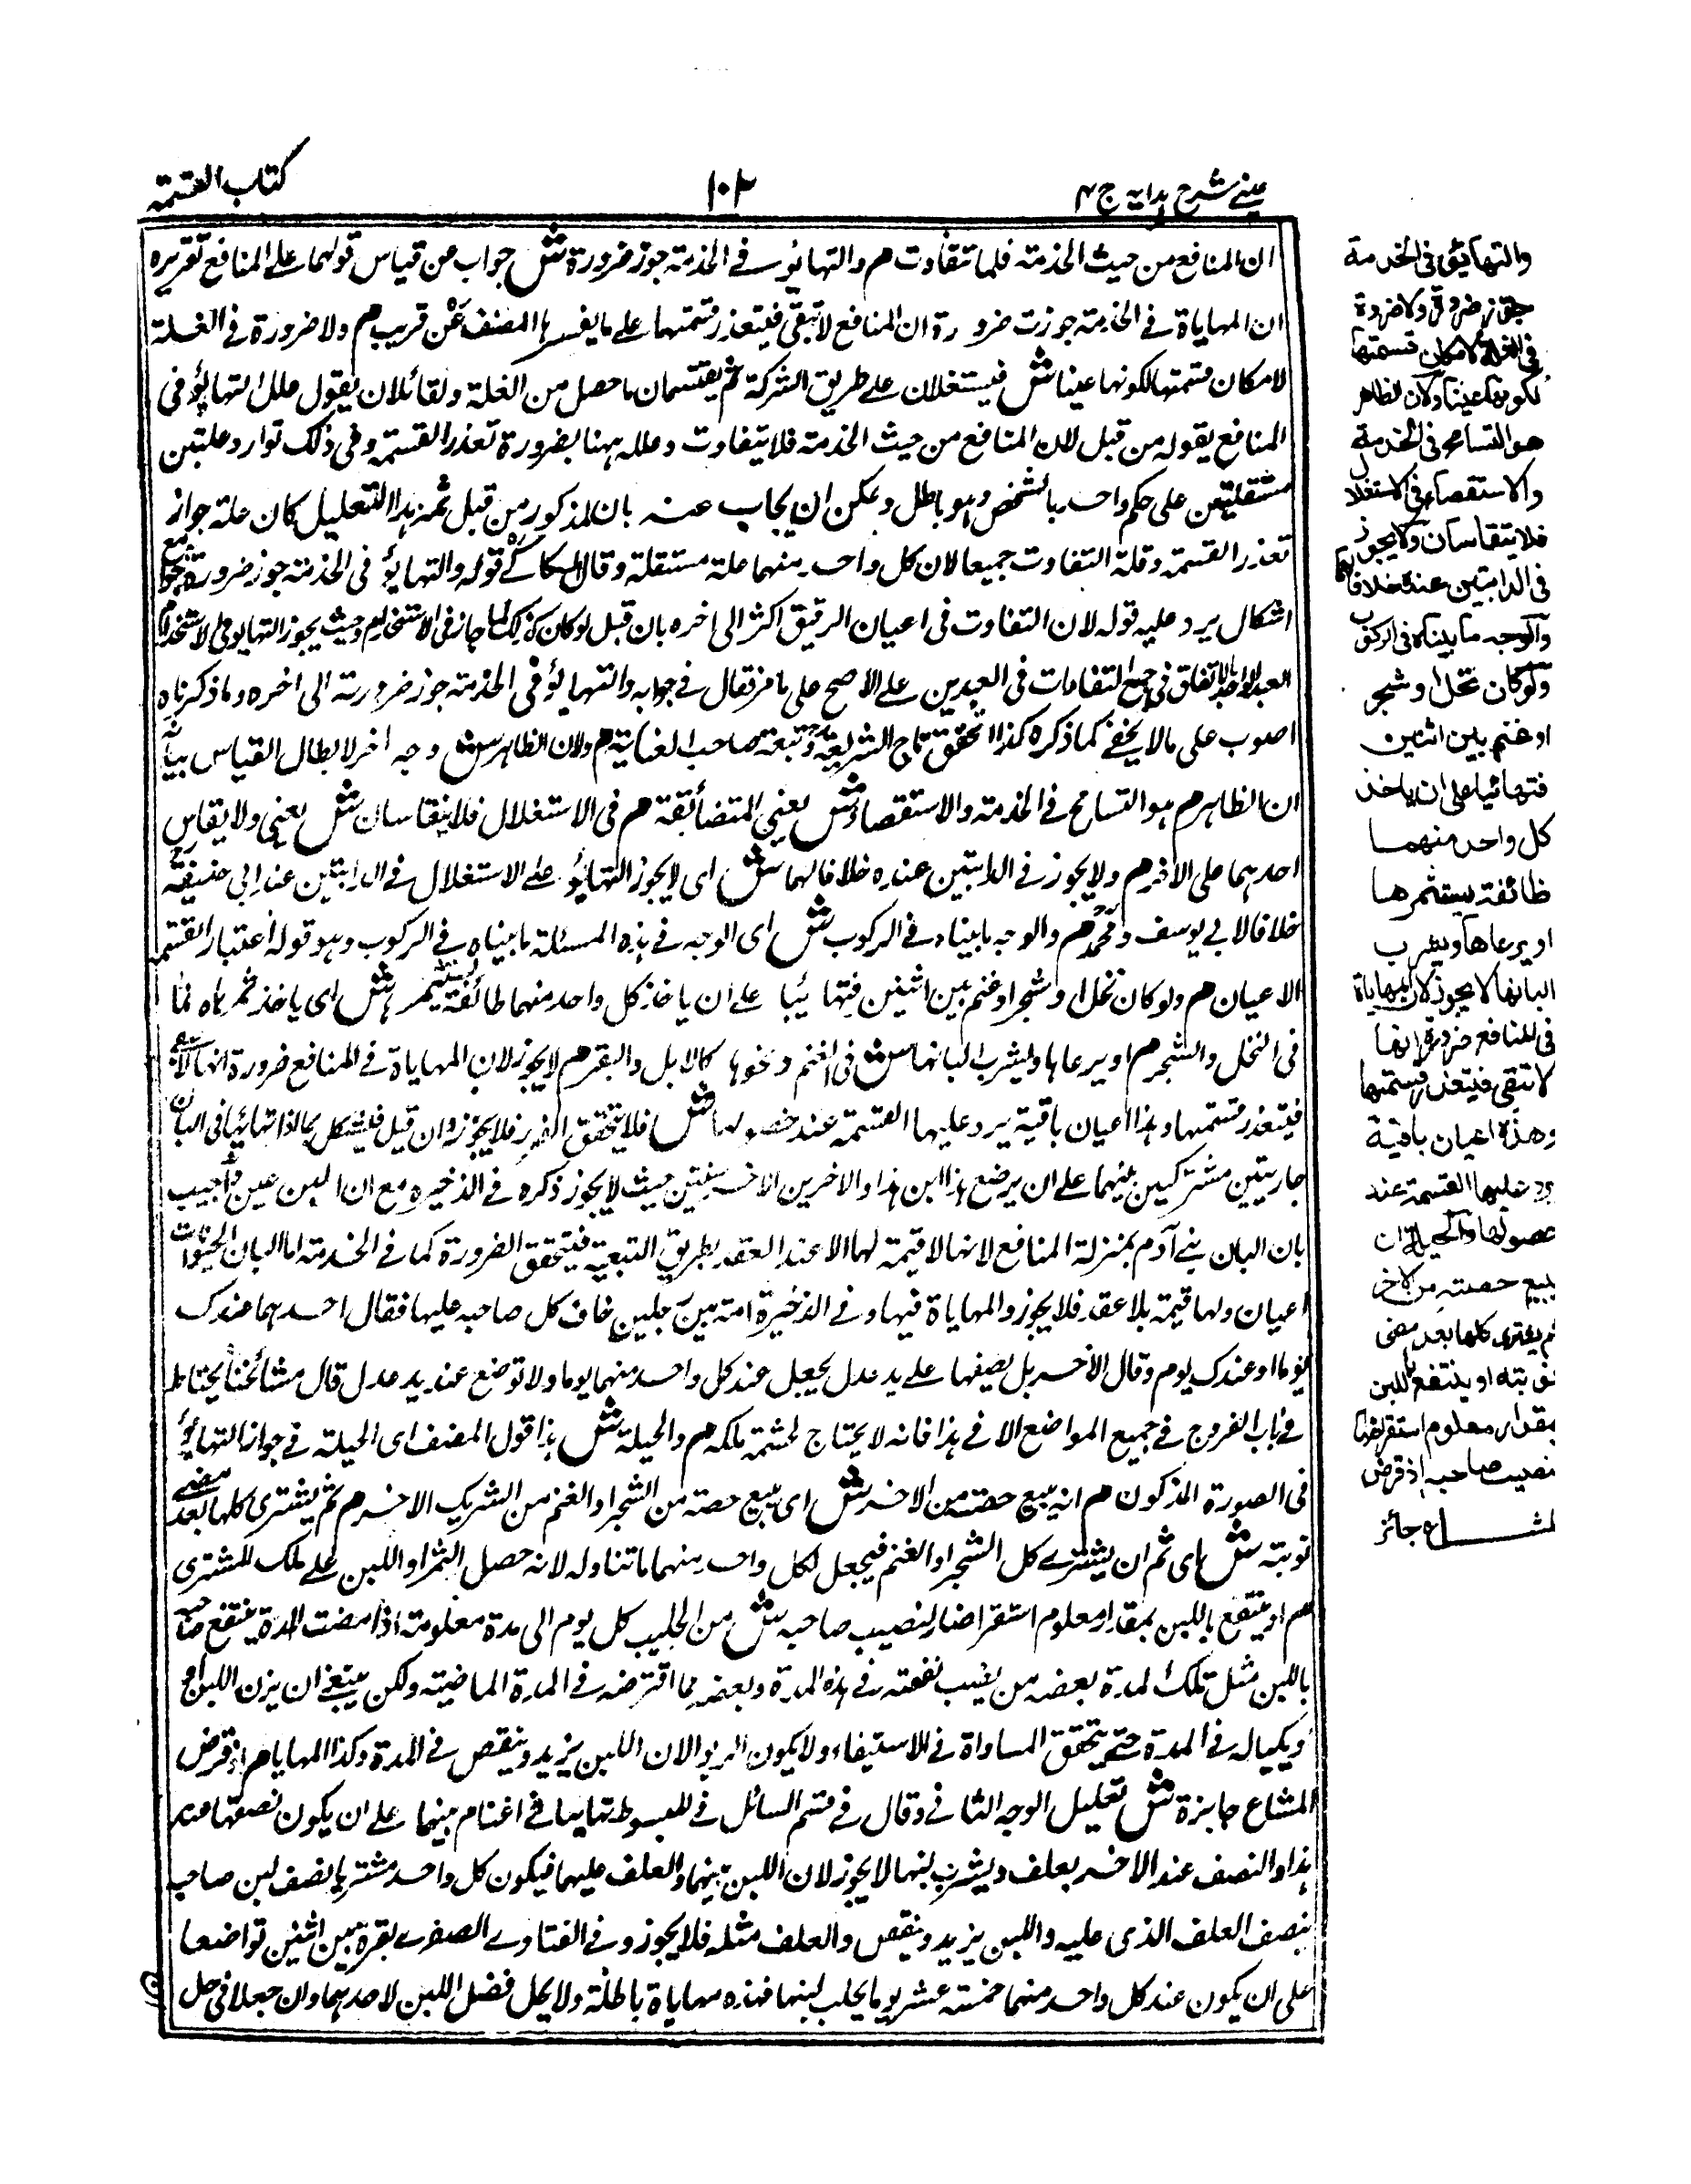 عينے شرح ہدایہ ج ۴
۱۰۲
کتاب القسمۃ
ان المنافع من حيث الخدمة فلما تتفاوت م والتهايؤ في الخدمة جوز ضرورة ش جواب عن قياس قولهما على المنافع تقريره
ان المهاياة في الخدمة جوزت ضرورة ان المنافع لا تبقى فيتعذر قسمتها على ما يفسرها المصنف عن قريب م ولا ضرورة في الغلة
لامكان قسمتها لكونها عينا ش فيستغلان على طريق الشركة ثم يقتسمان ما حصل من الغلة ولقائل ان يقول علل التهايؤ في
المنافع بقوله من قبل لان المنافع من حيث الخدمة فلا يتفاوت وعلله ههنا بضرورة تعذر القسمة وفي ذلك توارد علتين
مستقلتين على حكم واحد بالشخص وهو باطل ويمكن ان يجاب عنه بان المذكور من قبل ثمه هذا التعليل كان علة جواز
تعذر القسمة وقلة التفاوت جميعا لان كل واحد منهما علة مستقلة وقال الكاكي قوله والتهايؤ في الخدمة جوز ضرورة
اشكال يرد عليه قوله لان التفاوت في اعيان الرقيق اكثر الى اخره بان قبل لو كان كذلك لما جاز في الاستخدام وحيث يجوز التهايؤ على الاستخدام
العبد الواحد بالاتفاق في العبدين على الاصح على ما مر فقال في جوابه والتهايؤ في الخدمة جوز ضرورة الى اخره وما ذكرناه
اصوب على ما لا يخفى كما ذكره كذا تحقق تاج الشريعة وتبعه صاحب العناية م ولان الظاهر ش وجه اخر لابطال القياس بيانه
ان الظاهر م هو التسامح في الخدمة والاستقصاء ش يعني المتضائقة م في الاستغلال فلا يتقاسان ش يعني ولا يقاس
احدهما على الاخر م ولا يجوز في الدابتين عنده خلافا لهما ش اى لا يجوز التهايؤ على الاستغلال في الدابتين عند ابي حنيفة
خلافا لابي يوسف ومحمد م والوجه ما بيناه في الركوب ش اى الوجه في هذه المسئلة ما بيناه في الركوب وهو قوله اعتبار القسمة
الاعيان م ولو كان نخل او شجر او غنم بين اثنين فتهائيا على ان ياخذ كل واحد منهما طائفة يستثمرها ش اى ياخذ ثمرها
في النخل والشجر م او يرعاها ويشرب البانها ش في الغنم ونحوها كالابل والبقر م لا يجوز لان المهاياة في المنافع ضرورة انها لا تبقى
فيتعذر قسمتها وهذا اعيان باقية يرد عليها القسمة عند حصولها ش فلا يتحقق الضرر فلا يجوز وان قيل فيشكل بما اذا تهائيا في البان
جاريتين مشتركتين بينهما على ان يرضع هذا ابن هذا والاخرين الاخر سنتين حيث لا يجوز ذكره في الذخيرة مع ان اللبن عين واجيب
بان البان بني آدم بمنزلة المنافع لانها لا قيمة لها الا عند العقد بطريق التبعية فيتحقق الضرورة كما في الخدمة اما البان الحيوانات
اعيان ولها قيمة بلا عقد فلا يجوز والمهاياة فيها وفي الذخيرة امة بين رجلين خاف كل صاحبه عليها فقال احدهما عندك
يوما او عندك يوم وقال الاخر بل يضعها على يد عدل يجعل عند كل واحد منهما يوما ولا توضع عند يد عدل قال مشائخنا يحتاط
في باب الفروج في جميع المواضع الا في هذا فانه لا يحتاج لحشمة ملكه م والحيلة ش هذا قول المصنف اى الحيلة في جواز التهايؤ
في الصورة المذكون م انه يبيع حصته من الاخر ش اى يبيع حصته من الشجر او الغنم من الشريك الاخر م ثم يشترى كلها بعد مضى
نوبته ش اى ثم ان يشترى كل الشجر او الغنم فيجعل لكل واحد منهما ما تناوله لانه حصل الثمر او اللبن على ملك المشترى
م او ينتفع باللبن بمقدار معلوم استقراضا لنصيب صاحبه ش من الحليب كل يوم الى مدة معلومة اذا مضت المدة ينتفع صاحبه
باللبن مثل تلك المدة بعضه من نصيب نفسه في هذه المدة وبعضه مما اقترضه في المدة الماضية ولكن ينبغي ان يزن اللبن
ويكياله في المدة حتى يتحقق المساواة في الاستيفاء ولا يكون الربو الان اللبن يزيد وينقص في المدة وكذا المهايا م اذ قرض
المشاع جايزة ش تعليل الوجه الثاني وقال في قسم السائل في المبسوط تهايئا في اغنام بينهما على ان يكون نصفها عند
هذا والنصف عند الاخر يعلف ويشرب لبنها لا يجوز لان اللبن بينهما والعلف عليهما فيكون كل واحد مشتريا نصف لبن صاحبه
بنصف العلف الذى عليه واللبن يزيد وينقص والعلف مثله فلا يجوز وفي الفتاوى الصغرى بقرة بين اثنين تواضعا
على ان يكون عند كل واحد منهما خمسة عشر يوما يحلب لبنها فهذه مهاياة باطلة ولا يحل فضل اللبن لاحدهما وان جعلا في حل
والتهايؤ في الخدمة
جوز ضرورة ولا ضرورة
في الغلة لامكان قسمتها
لكونها عينا ولان الظاهر
هو التسامح في الخدمة
والاستقصاء في الاستغلال
فلا يتقاسان ولا يجوز
في الدابتين عنده خلافا لهما
والوجه ما بيناه في الركوب
ولو كان نخل او شجر
او غنم بين اثنين
فتهائيا على ان ياخذ
كل واحد منهما
طائفة يستثمرها
او يرعاها ويشرب
البانها لا يجوز لان المهاياة
في المنافع ضرورة انها
لا تبقى فيتعذر قسمتها
وهذه اعيان باقية
يرد عليها القسمة عند
حصولها والحيلة ان
يبيع حصته من الاخر
ثم يشترى كلها بعد مضى
نوبته او ينتفع باللبن
بمقدار معلوم استقراضا
نصيب صاحبه اذ قرض
المشاع جائز